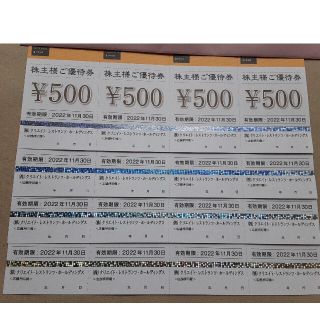 株主様ご優待券 株主様ご優待券 株主様ご優待券 株主様ご優待券
¥500 ¥500 ¥500 ¥500
有効期限:2022年11月30日 有効期限:2022年11月30日 有効期限:2022年11月30日 有効期限:2022年11月30日
㈱クリエイト・レストランツ・ホールディングス ㈱クリエイト・レストランツ・ホールディングス ㈱クリエイト・レストランツ・ホールディングス ㈱クリエイト・レストランツ・ホールディングス
有効期限:2022年11月30日 有効期限:2022年11月30日 有効期限:2022年11月30日 有効期限:2022年11月30日
㈱クリエイト・レストランツ・ホールディングス ㈱クリエイト・レストランツ・ホールディングス ㈱クリエイト・レストランツ・ホールディングス ㈱クリエイト・レストランツ・ホールディングス
有効期限:2022年11月30日 有効期限:2022年11月30日 有効期限:2022年11月30日 有効期限:2022年11月30日
㈱クリエイト・レストランツ・ホールディングス ㈱クリエイト・レストランツ・ホールディングス ㈱クリエイト・レストランツ・ホールディングス ㈱クリエイト・レストランツ・ホールディングス
有効期限:2022年11月30日 有効期限:2022年11月30日 有効期限:2022年11月30日 有効期限:2022年11月30日
㈱クリエイト・レストランツ・ホールディングス ㈱クリエイト・レストランツ・ホールディングス ㈱クリエイト・レストランツ・ホールディングス ㈱クリエイト・レストランツ・ホールディングス